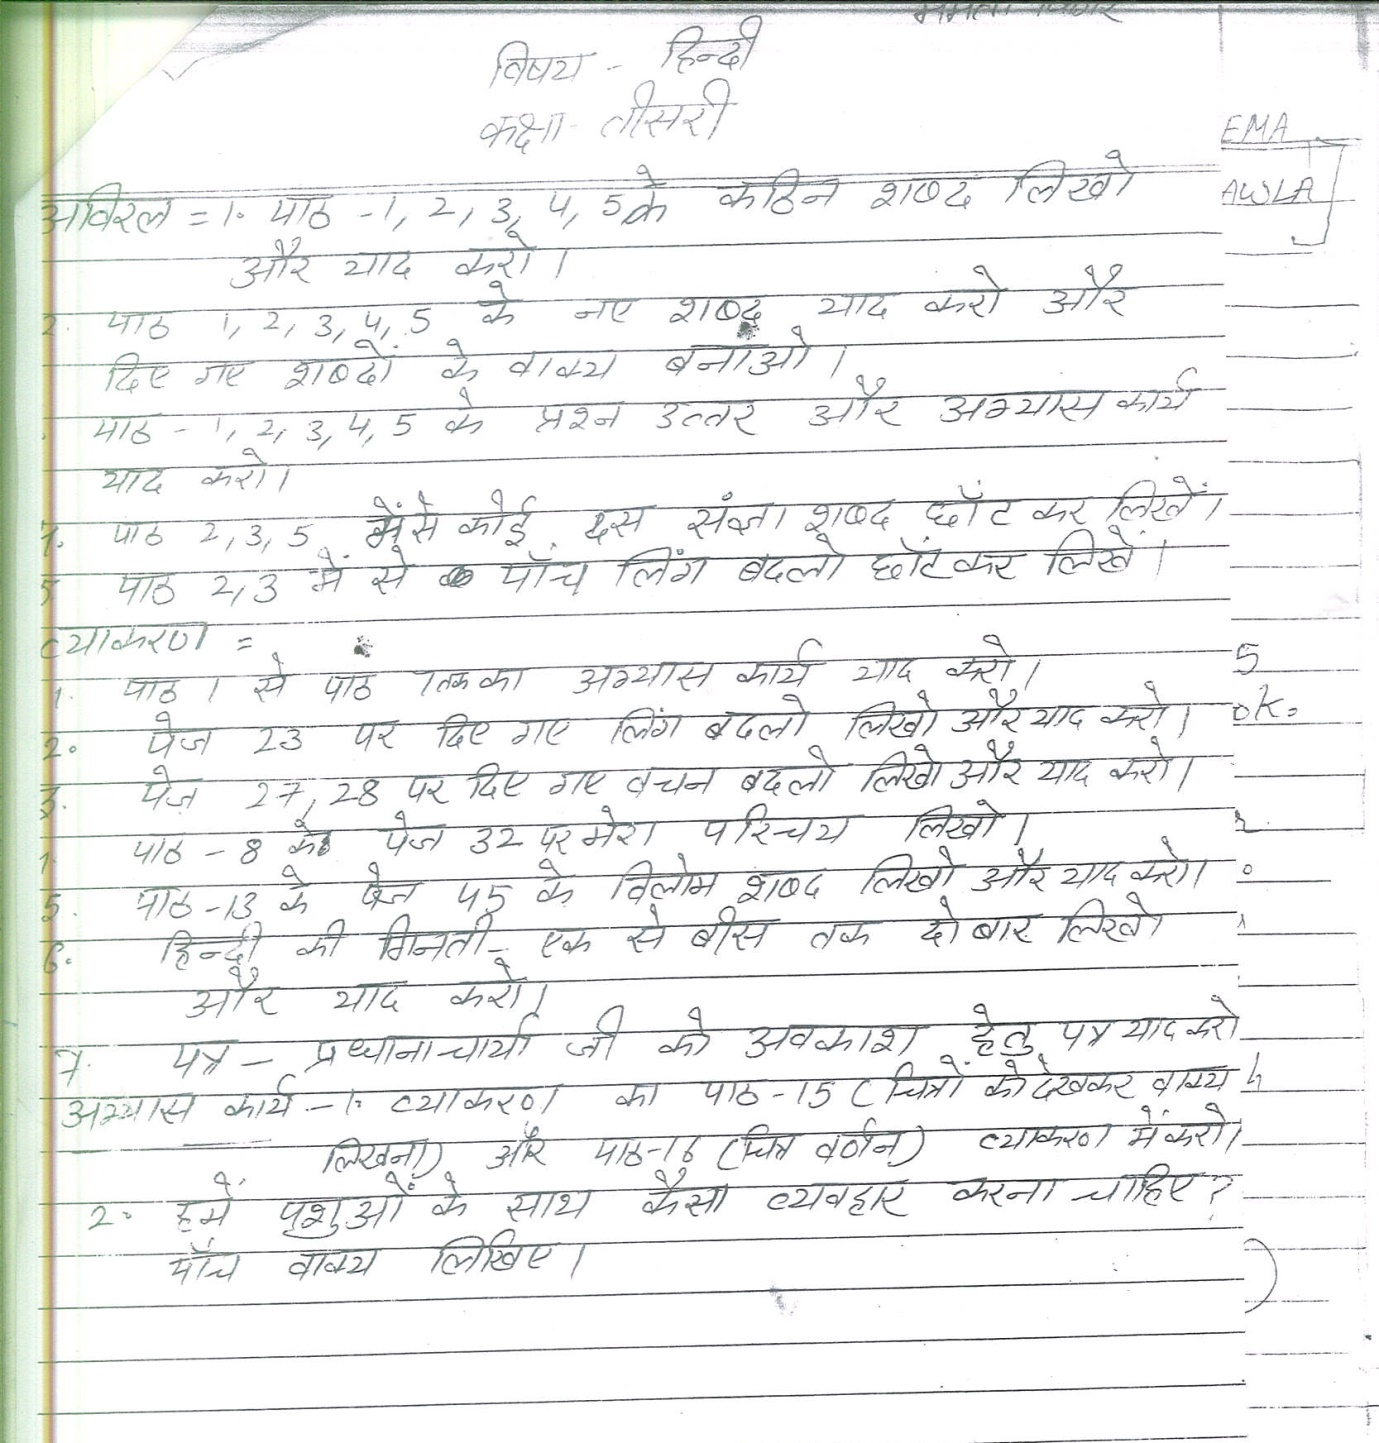 विषय - हिन्दी
कक्षा - तीसरी
EMA
AWLA
अविरल = 1. पाठ - 1, 2, 3, 4, 5 के कठिन शब्द लिखो
और याद करो।
2. पाठ 1, 2, 3, 4, 5 के नए शब्द याद करो और
दिए गए शब्दों के वाक्य बनाओ।
पाठ - 1, 2, 3, 4, 5 के प्रश्न उत्तर और अभ्यास कार्य
याद करो।
4. पाठ 2, 3, 5 में से कोई दस संज्ञा शब्द छाँट कर लिखें।
5 पाठ 2, 3 में से पाँच लिंग बदलो छाँटकर लिखें।
व्याकरण =
1. पाठ 1 से पाठ 7 तक का अभ्यास कार्य याद करो।
5
2. पेज 23 पर दिए गए लिंग बदलो लिखो और याद करो।
ok.
3. पेज 27, 28 पर दिए गए वचन बदलो लिखो और याद करो।
पाठ - 8 के पेज 32 पर मेरा परिचय लिखो।
5. पाठ - 13 के पेज 45 के विलोम शब्द लिखो और याद करो।
6. हिन्दी की गिनती - एक से बीस तक दो बार लिखो
और याद करो।
7. पत्र - प्रधानाचार्या जी को अवकाश हेतु पत्र याद करो
अभ्यास कार्य - 1. व्याकरण का पाठ - 15 (चित्रों को देखकर वाक्य
लिखना) और पाठ - 16 (चित्र वर्णन) व्याकरण में करो।
2. हमें पशुओं के साथ कैसा व्यवहार करना चाहिए?
पाँच वाक्य लिखिए।